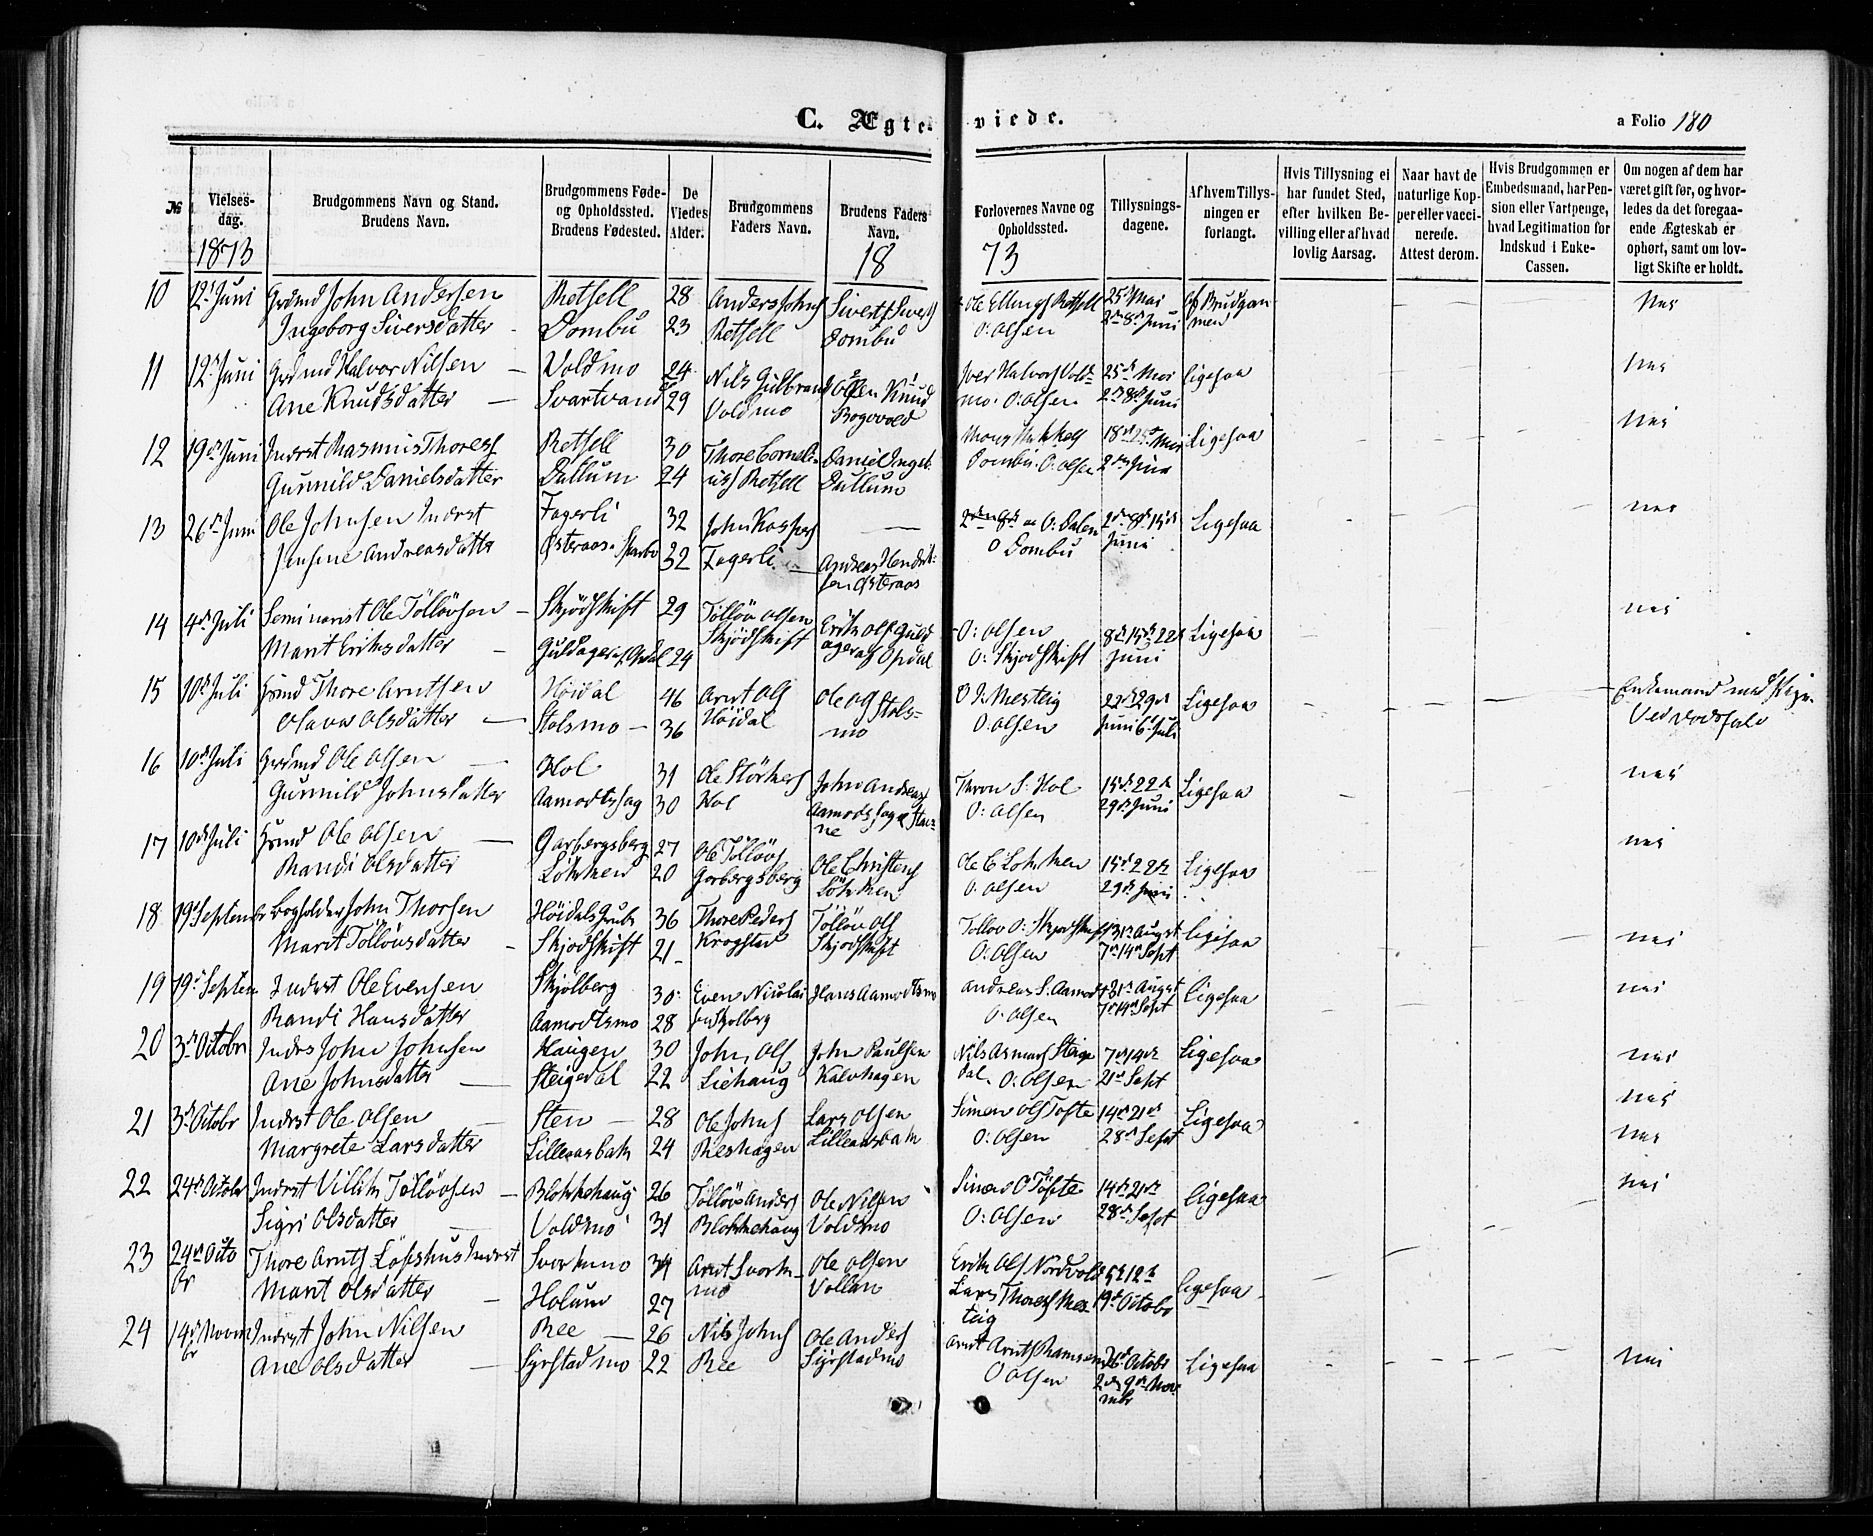 C. Ægteviede.
a Folio 180
№
Vielses-
dag.
Brudgommens Navn og Stand.
Brudens Navn.
Brudgommens Føde-
og Opholdssted.
Brudens Fødested.
De
Viedes
Alder.
Brudgommens
Faders Navn.
Brudens Faders
Navn.
Forlovernes Navne og
Opholdssted.
Tillysnings-
dagene.
Af hvem Tillys-
ningen er
forlangt.
Hvis Tillysning ei
har fundet Sted,
efter hvilken Be-
villing eller af hvad
lovlig Aarsag.
Naar havt de
naturlige Kop-
per eller vacci-
nerede.
Attest derom.
Hvis Brudgommen er
Embedsmand, har Pen-
sion eller Vartpenge,
hvad Legitimation for
Indskud i Enke-
Cassen.
Om nogen af dem har
været gift før, og hvor-
ledes da det foregaa-
ende Ægteskab er
ophørt, samt om lov-
ligt Skifte er holdt.
1873
18 73
10 12 Juni Grdmd John Andersen Retfell 28 Anders Johns Sivert Siverts Ole Ellings Retfell 25 Mai af Brudgom nei
Ingeborg Siversdatter Dombu 23 Retfell Dombu O: Olsen 2den 8de Juni men
11 12 Juni Grdmd Halvor Nilsen Voldmo 24 Nils Gulbrand Knud Iver Halvors Vold 25de Mai Ligesaa nei
Ane Knudsdatter Svartvand 29 Voldmo mo. O: Olsen 2den 8de Juni
12 19de Juni Inderst Rasmus Thores Retfell 30 Thore Corneli Daniel Inget 18de 25de Mai Ligesaa nei
Gunnild Danielsdatter Dullum 24 us Retfell Dullum Dombu. O: Olsen 2den Juni
13 26de Juni Ole Johnsen Inderst Fagerli 32 John Kaspers — O: Dalen 2den 8de 15de Ligesaa nei
Jensine Andreasdatter Østeraas 32 Fagerli Andreas Hendrik O Dombu Juni
sen Østeraas
14 4de Juli Seminarist Ole Tølløvsen Skjødskift 29 Tølløv Olsen Erik Ols Guld O: Olsen 8de 15de 22de Ligesaa nei
Marit Eriksdatter Guldager 24 Skjødskift ager af Opdal O: Skjodskift Juni
15 10de Juli Thore Arntsen Høidal 46 Arnt Ols Ole Ols Stols Mestlig 22de 29de Ligesaa Enkemand med
Olava Olsdatter Stolsmo 36 Høidal mo O: Olsen Juni 6te Juli
16 10de Juli Grdmd Ole Olsen Hol 31 Ole Størkers John Anders Thron S: Hol 15de 22de Ligesaa nei
Gunnild Johnsdatter Aamodtshag 30 Hol Aamodtshag O: Olsen 29de Juni
17 10de Juli Ole Olsen Garbergsberg 27 Ole Tølløvs Ole Christens Ole C Løkken 15de 22de Ligesaa nei
Randi Olsdatter Løkken 20 Garbergsberg Løkken O: Olsen 29de Juni
18 19de September Bogholder John Thorsen Høidals Grube 36 Thore Peders Tølløv Ols Tollov O: Skjodskift 31te August Ligesaa nei
Marit Tølløvsdatter Skjodskift 21 Krogstad Skjødskift O: Olsen 7de 14de Sept
19 19de Septem Inderst Ole Evensen Skjølberg 30 Even Nicolai Hans Aamodtsmo Andreas S. Aamodt 31te August Ligesaa nei
Randi Hansdatter Aamodtsmo 28 sen Skjolberg O: Olsen 7de 14de Sept
20 3de Octobr Inders John Johnsen Haugen 30 John Ols John Paulsen Nils Steige 7de 14de Ligesaa nei
Ane Johnsdatter Steigedal 22 Liehaug Kalvhagen dal. O: Olsen 21de Sept
21 3de Octobr Inderst Ole Olsen Sten 28 Ole Johns Lars Olsen Simen Ols Tofte 14de 21de Ligesaa nei
Margrete Larsdatter Lilleaasbak 24 Reshagen O: Olsen 28de Sept nei
22 24de Octobr Inderst Villik Tølløvsen Blokkehaug 26 Tølløv Anders Ole Nilsen Simen O Tofte 14de 21de Ligesaa nei
Sigri Olsdatter Voldmo 31 Blokkehaug Voldmo O: Olsen 28de Sept
23 24de Octo Thore Arnts Løfshus Inderst Svorkmo 34 Arnt Svork Ole Olsen Erik Ols Nordvold 5te 12te Ligesaa
br Marit Olsdatter Holum 27 mo Vollan Lars Thores Mes 19de Octobr
teig
24 14de Novem Inderst John Nilsen Ree 26 Nils Johns Ole Anders Arnt Arnts Ramsem 26de Octobr Ligesaa nei
br Ane Olsdatter Syrstadmo 22 Ree Syrstadmo O Olsen 2den 9de Nove
mbr